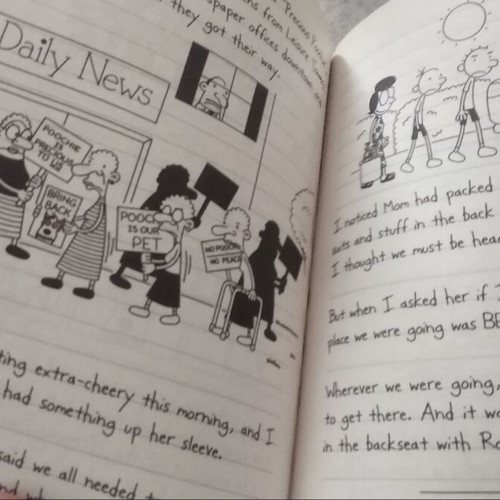 Precious Poochie
ns from Leisure Towers
paper offices downtown, and
they got their way.
Daily News
POOCHIE
PRECIOUS
TO US
BRING
BACK
POOC
IS OUR
PET
NO POOCHIE
NO PEACE
ting extra-cheery this morning, and I
had something up her sleeve.
said we all needed t
I noticed Mom had packed
suits and stuff in the back
I thought we must be hea
But when I asked her if
place we were going was BE
Wherever we were going,
to get there. And it wa
in the backseat with Ro